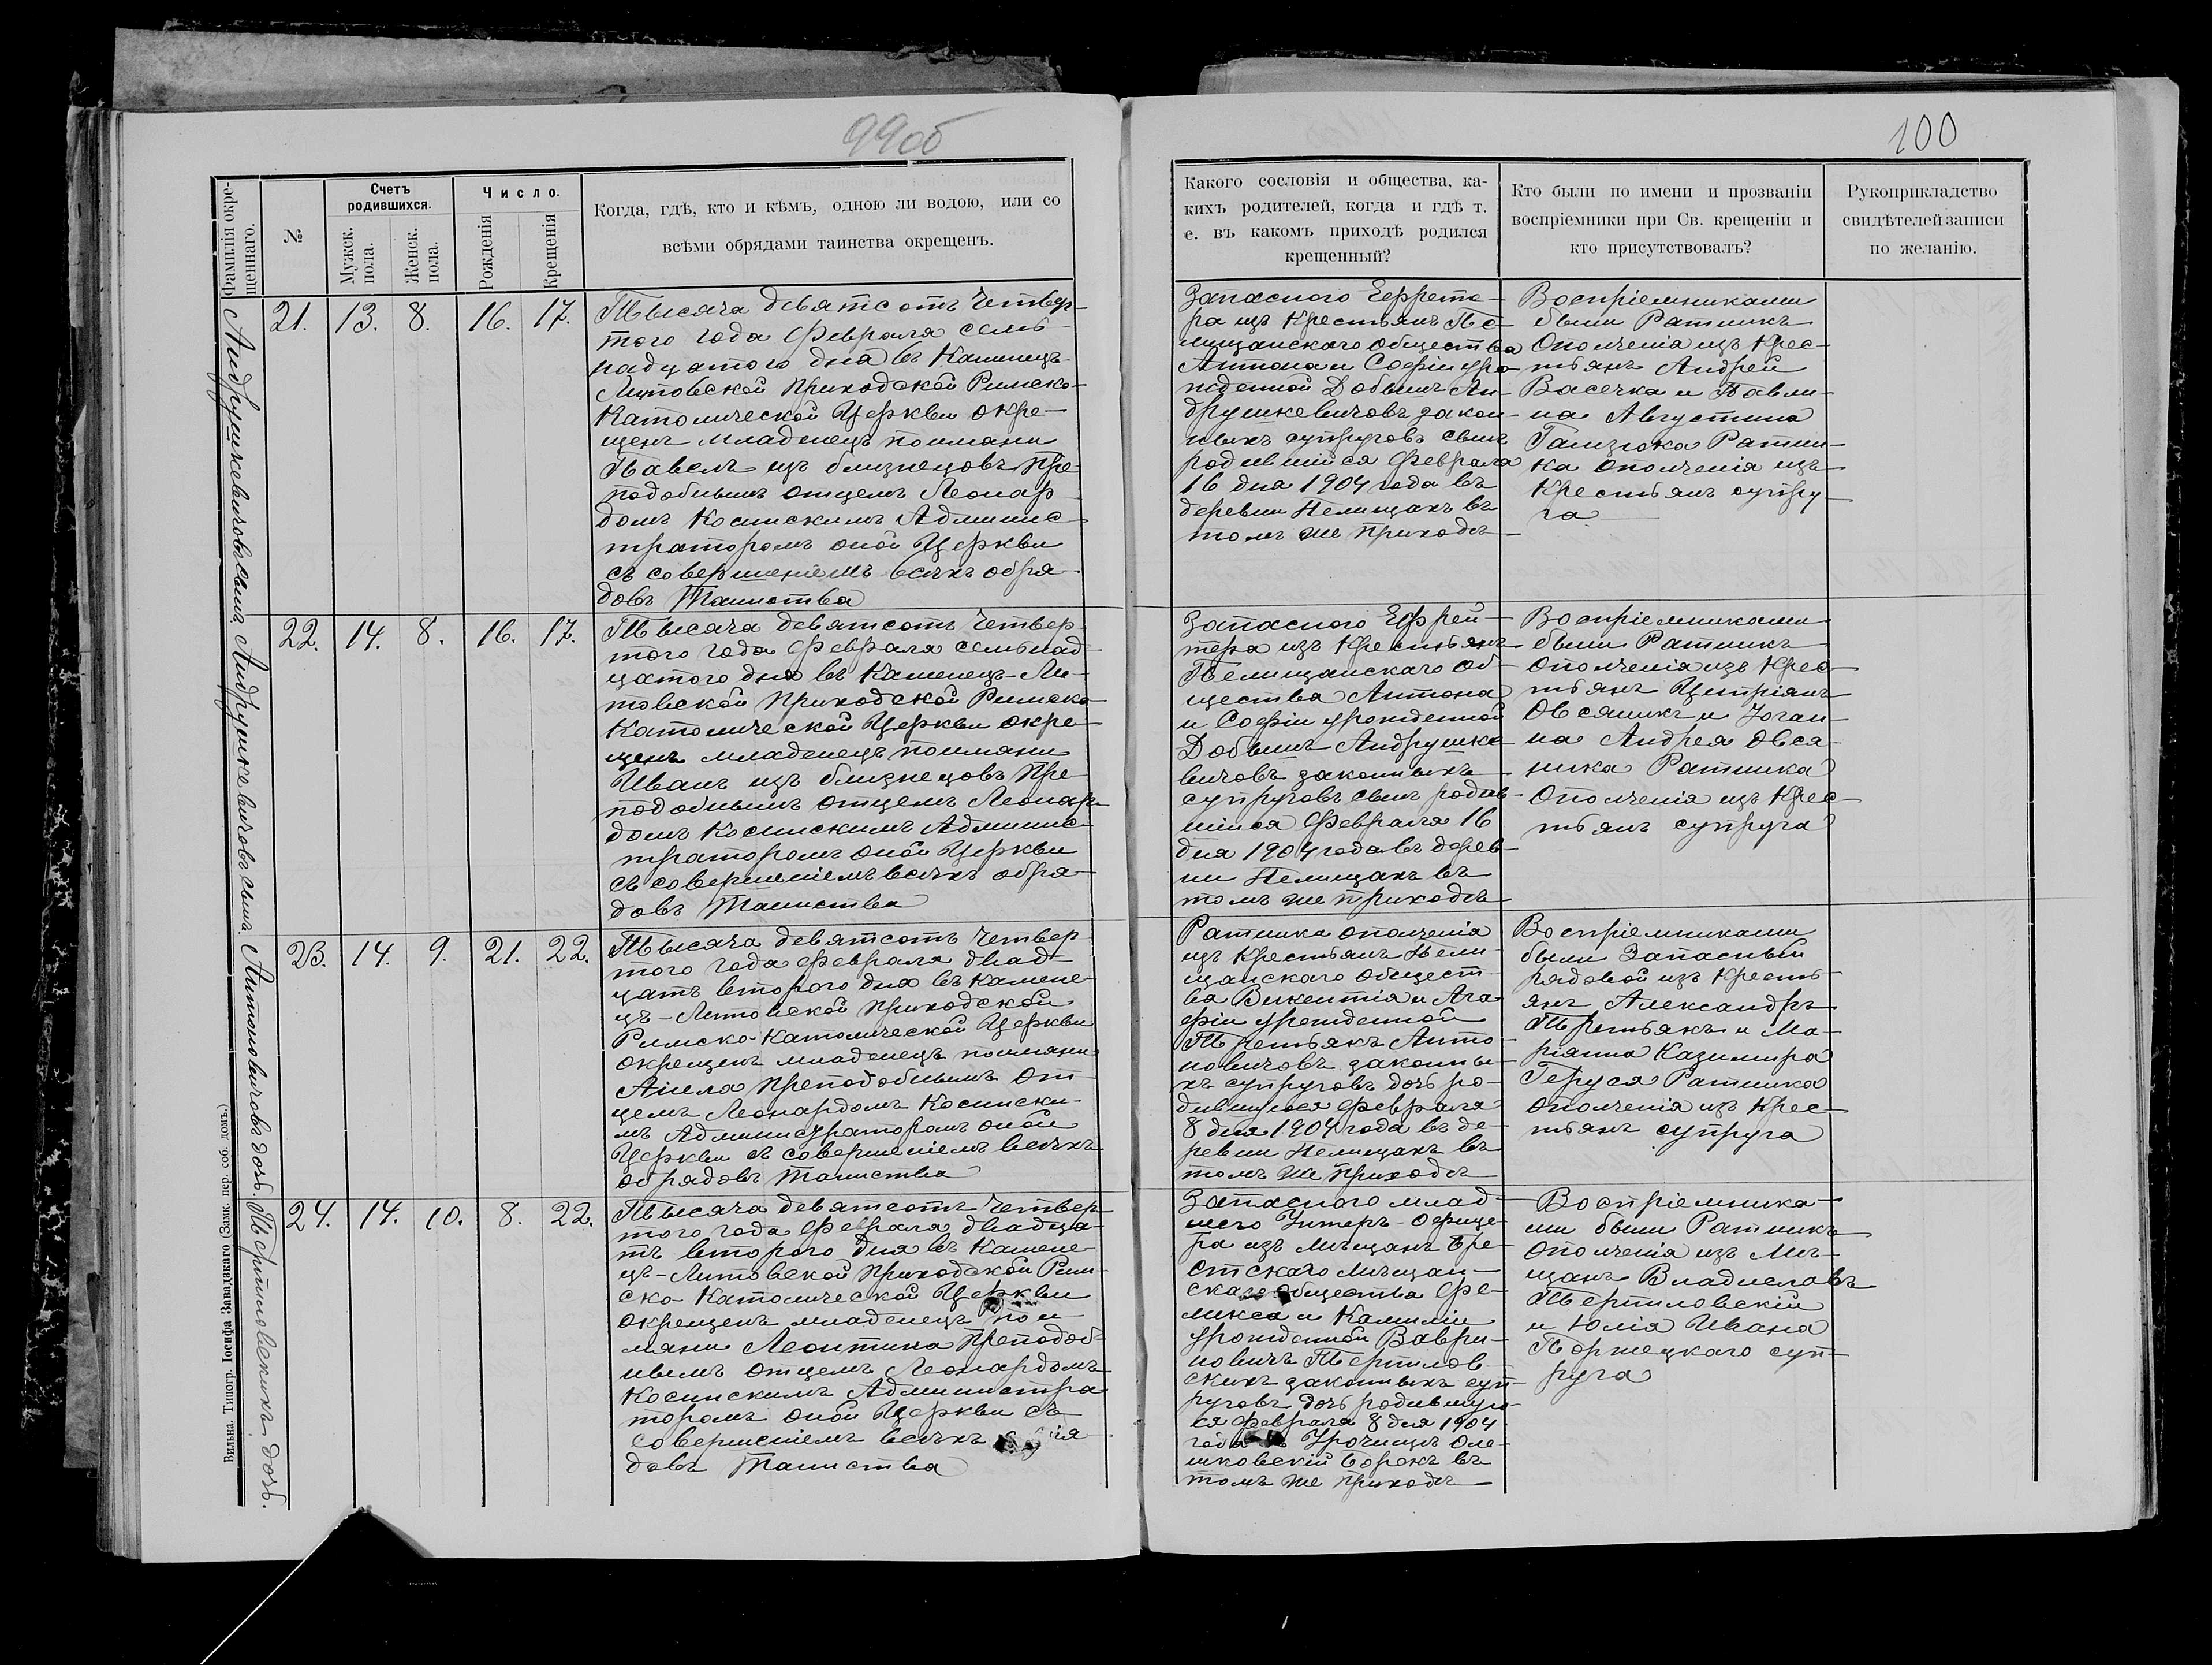 99об
Фамилія окре-
щеннаго.
№
Счетъ
родившихся.
Мужск.
пола.
Женск.
пола.
Число.
Рожденія
Крещенія
Когда, гдѣ, кто и кѣмъ, одною ли водою, или со
всѣми обрядами таинства окрещенъ.
Андрушкевичовъ сынъ.
21. 13. 8. 16. 17.
Тысяча девятсотъ четвер-
того года Февраля семь-
надцатого дня въ Каменецъ-
Литовской Приходской Римско-
Католической Церкви окре-
щенъ младенецъ поимяни
Павелъ изъ близнецовъ Пре-
подобнымъ отцемъ Леонар-
домъ Косинскимъ Админис-
траторомъ оной Церкви
съ совершеніемъ всѣхъ обря-
довъ Таинства
Андрушкевичовъ сынъ.
22. 14. 8. 16. 17.
Тысяча девятсотъ четвер-
того года Февраля семьнад-
цатого дня въ Каменецъ-Ли-
товской Приходской Римско-
Католической Церкви окре-
щенъ младенецъ поимяни
Иванъ изъ близнецовъ Пре-
подобнымъ отцемъ Леонар-
домъ Косинскимъ Админис-
траторомъ оной Церкви
съ совершеніемъ всѣхъ обря-
довъ Таинства
Антоновичовъ дочь.
23. 14. 9. 21. 22.
Тысяча девятсотъ четвер-
того года Февраля двад-
цатъ второго дня въ Камене-
цъ-Литовской Приходской
Римско-Католической Церкви
окрещенъ младенецъ поимяни
Анеля Преподобнымъ От-
цемъ Леонардомъ Косински-
мъ Администраторомъ оной
Церкви съ совершеніемъ всѣхъ
обрядовъ Таинства
Тертиловскихъ дочь.
24. 14. 10. 8. 22.
Тысяча девятсотъ четвер-
того года Февраля двадца-
тъ второго дня въ Камене-
цъ-Литовской Приходской Рим-
ско-Католической Церкви
окрещенъ младенецъ пои-
мяни Леонтина Преподоб-
нымъ отцемъ Леонардомъ
Косинскимъ Администра-
торомъ оной Церкви съ
совершеніемъ всѣхъ
довъ Таинства
Вильна. Типогр. Іосифа Завадзкаго (Замк. пер. соб. домъ.)
100
Какого сословія и общества, ка-
кихъ родителей, когда и гдѣ т.
е. въ какомъ приходѣ родился
крещенный?
Кто были по имени и прозванію
воспріемники при Св. крещеніи и
кто присутствовалъ?
Рукоприкладство
свидѣтелей записи
по желанію.
Запасного Ефрейто-
ра изъ Крестьянъ Пе-
лищанскаго общества
Антона и Софіи уро-
жденной Добышъ Ан-
друшкевичовъ закон-
ныхъ супруговъ сынъ
родившійся Февраля
16 дня 1904 года въ
деревни Пелищахъ въ
томъ же приходѣ
Воспріемниками
были Ратникъ
Ополченія изъ Крес-
тьянъ Андрей
Васечка и Павли-
на Августина
Ратни-
ка ополченія изъ
Крестьянъ супру-
га
Запасного Ефрей-
тера изъ Крестьянъ
Пелищанскаго Об-
щества Антона
и Софіи урожденной
Добышъ Андрушке-
вичовъ законныхъ
супруговъ сынъ родив-
шійся Февраля 16
дня 1904 года въ дерев-
ни Пелищахъ въ
томъ же приходѣ
Воспріемниками
были Ратникъ
Ополченія изъ Крес-
тьянъ Ципріянъ
Овсяникъ и Іоган-
на Андрея Овся-
ника Ратника
Ополченія изъ Крес-
тьянъ супруга
Ратника ополченія
изъ Крестьянъ Пели-
щанскаго Общест-
ва Викентія и Ага-
фіи урожденной
Третьякъ Анто-
новичовъ законны-
хъ супруговъ дочь ро-
дившуюся Февраля
8 дня 1904 года въ де-
ревни Пелищахъ въ
томъ же приходѣ
Воспріемниками
были Запасный
рядовой изъ Кресть-
янъ Александръ
Третьякъ и Ма-
ріянна Казимира
Геруся Ратника
ополченія изъ Крес-
тьянъ супруга
Запасного млад-
шего Унтеръ-Офице-
ра изъ мѣщанъ Бре-
стскаго мѣщан-
скаго общества Фе-
ликса и Камиліи
урожденной Ваври-
новичъ Тертилов-
скихъ законныхъ суп-
руговъ дочь родившую-
ся Февраля 8 дня 1904
года Урочищѣ Оле-
шковскій Борекъ въ
томъ же приходѣ
Воспріемника-
ми были Ратникъ
Ополченія изъ Мѣ-
щанъ Владиславъ
Тертиловскій
и Юлія Ивана
Поржецкаго суп-
руга